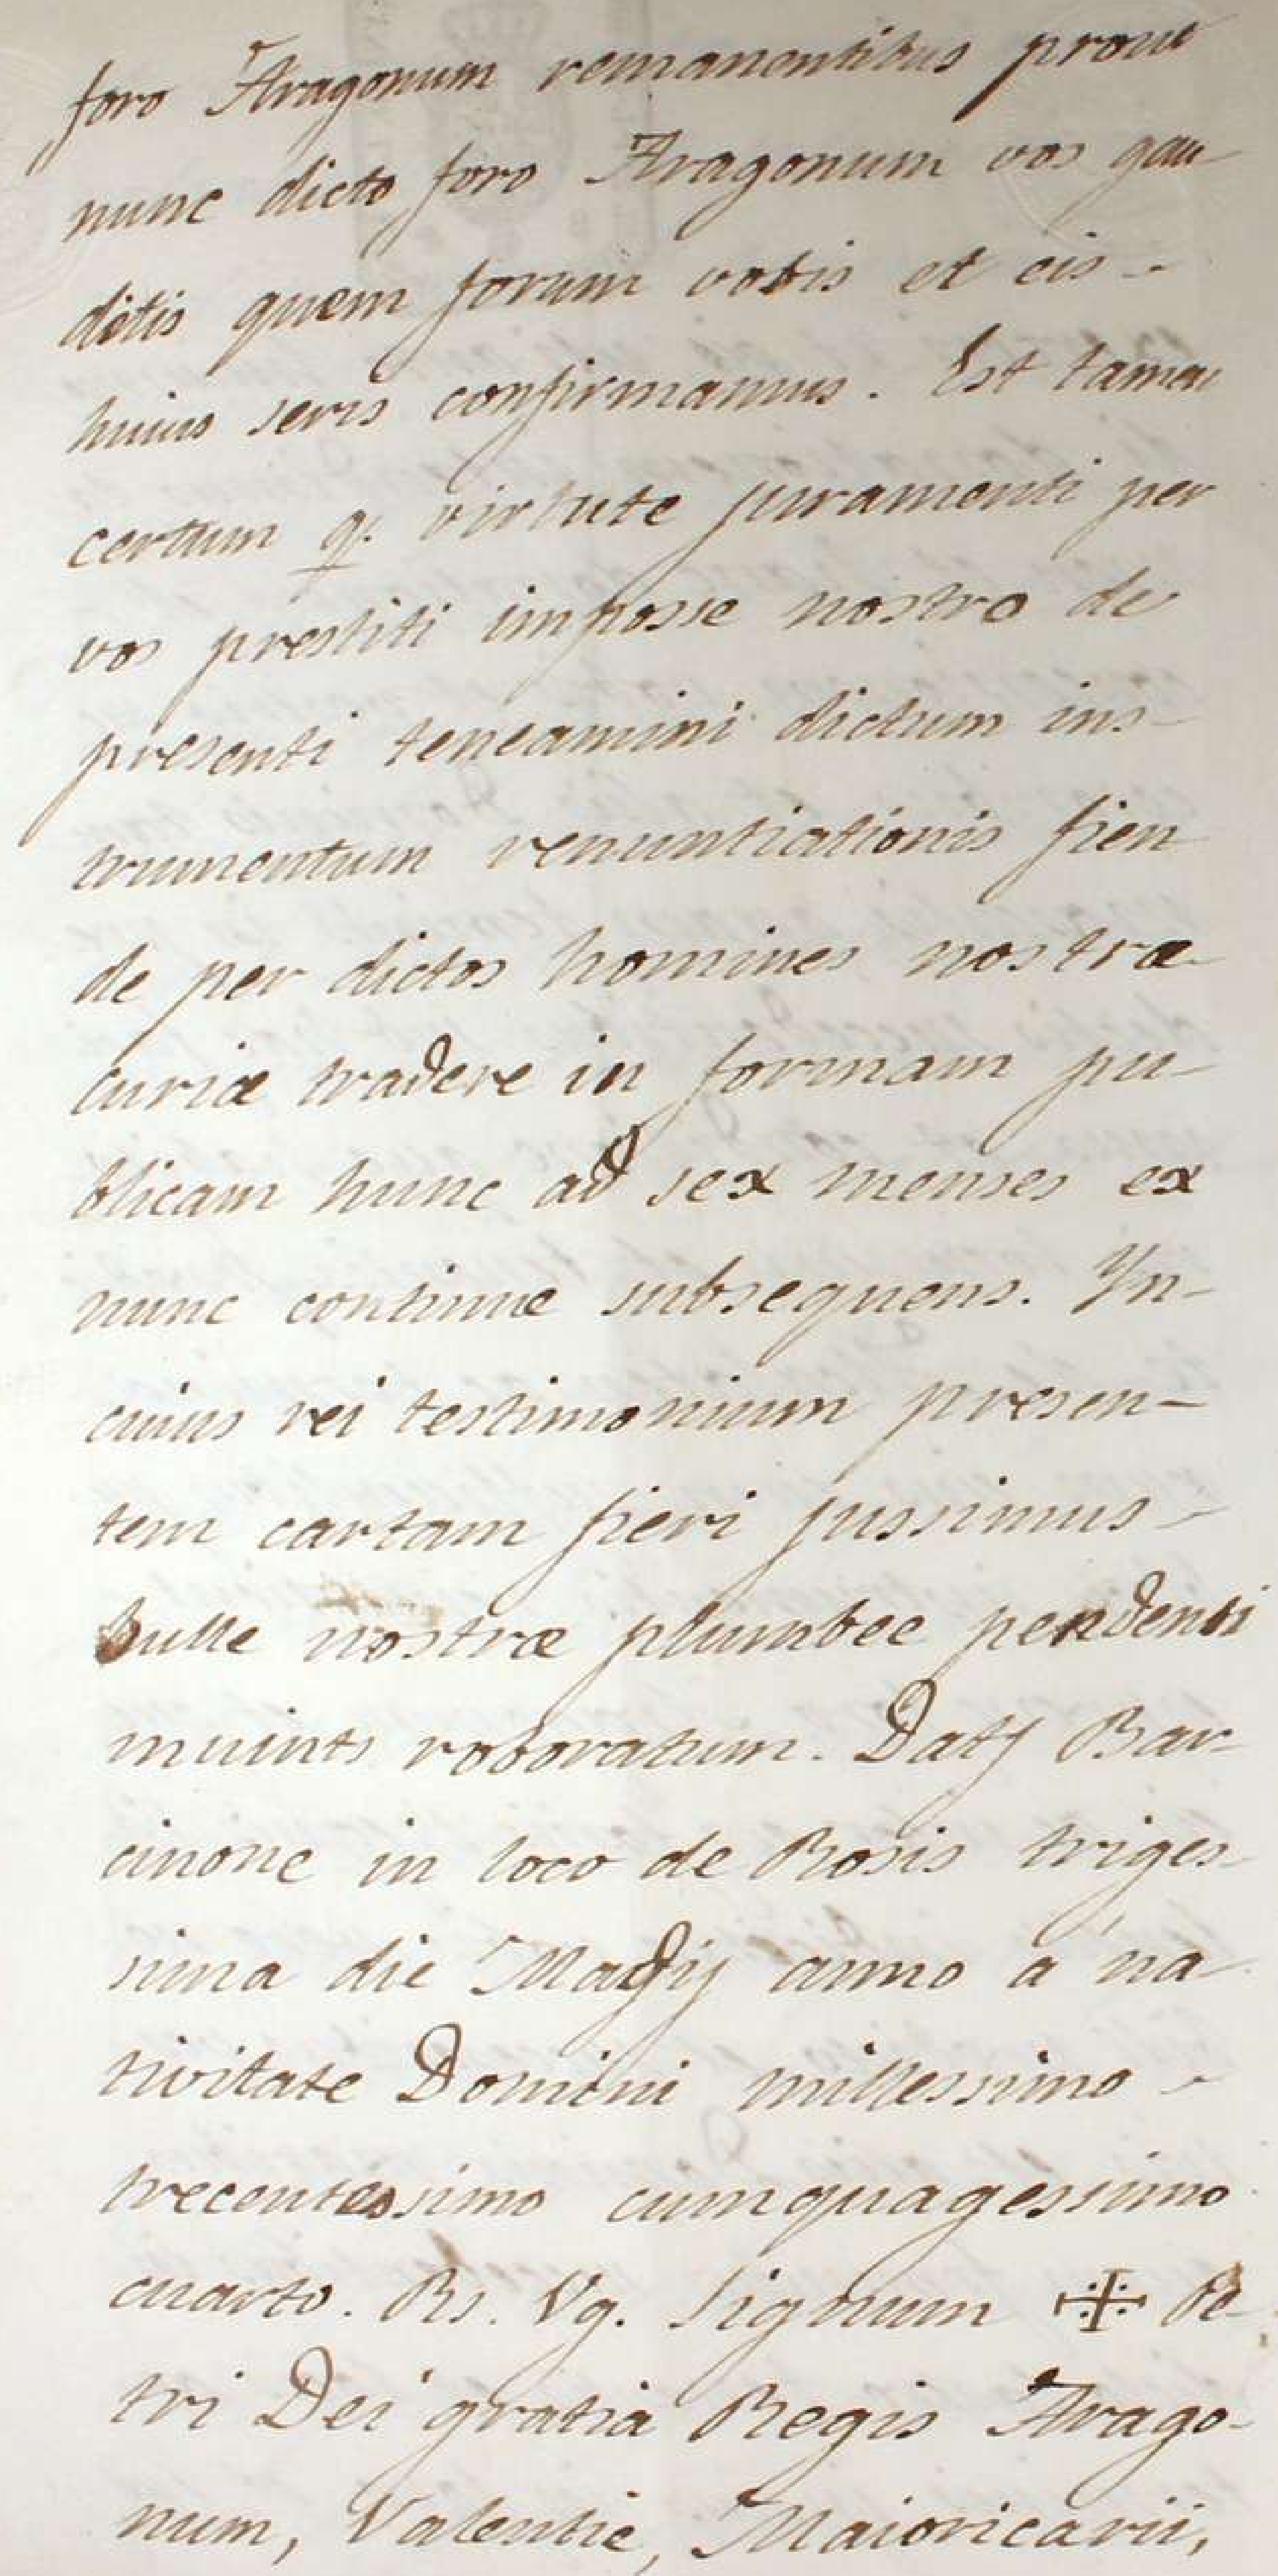 foro Aragonum remanentibus prout
nunc dicto foro Aragonum vos gau
ditis quem forum vobis et eis -
huius seris confirmamus. Est tamen
certum q. virtute juramenti per
vos prestiti imposse nostro de
presenti teneamini dictum ins-
trumentum renuntiationis fien
de per dictos homines nostræ
curiæ tradere in formam pu-
blicam hunc ad sex menses ex
nunc continue subsequens. Yn-
cuius rei testimonium presen-
tem cartam fieri jussimus -
bulle nostræ plumbee pendenti
muints roboratum. Daty Bar
cinone in loco de Rosis triges-
sima die Madij anno a na-
tivitate Domini millessimo -
trecentessimo cumquagessimo
cuarto. Rs. Vg. Signum ✠ Pe-
tri Dei gratia Regis Arago-
num, Valentie, Maioricarii,